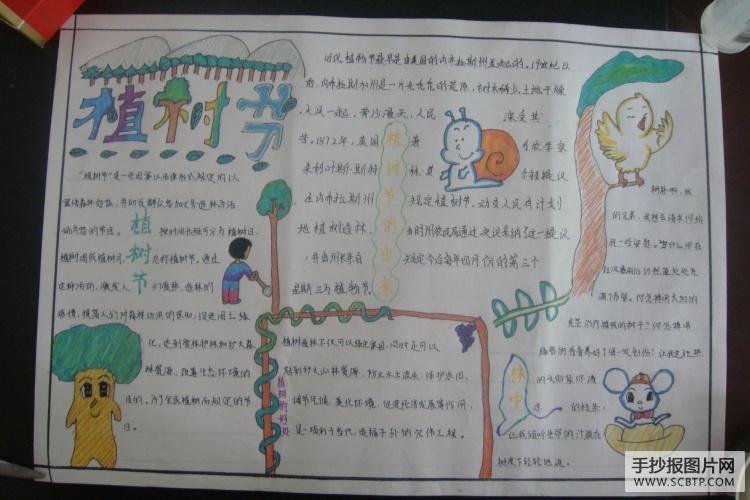 植树节
"植树节"是一些国家以法律形式规定的以
宣传森林效益,并动员群众参加义务造林为活
动内容的节日。
按时间长短可分为植树日、
植树周或植树月,
总称植树节。通过
这种活动,激发人
们爱林、造林的
感情,提高人们对森林功用的认识,促进国土绿
化,达到爱林护林和扩大森
林资源、改善生态环境的
目的。为了全民植树而规定的节
日。
植树节
近代植树节最早是由美国的内布拉斯州发起的。19世纪以
前,内布拉斯加州是一片光秃秃的荒原,树木稀少,土地干燥,
大风一起,黄沙满天,人民
深受其
苦。1872年,美国
著
名农学家
来利叶斯·斯特
林·莫
尔顿提议
在内布拉斯州
规定植树节,动员人民有计划
地植树造林。
当时州农业局通过决议采纳这一提议
,并由州长亲自
规定今后每年四月份的第三个
星期三为植树节。
植树节的由来
植树造林不仅可以绿化家园,同时还可以
起到扩大山林资源、防止水土流失、保护农田、
调节气候、美化环境、促进经济发展等作用,
是一项利于当代、造福子孙的宏伟工程。
植树的好处
树林啊,我
的兄弟,
满了希望。
林中
的枝条!
树皮下轻轻地流。
手抄报图片网
WWW.SCBTP.COM